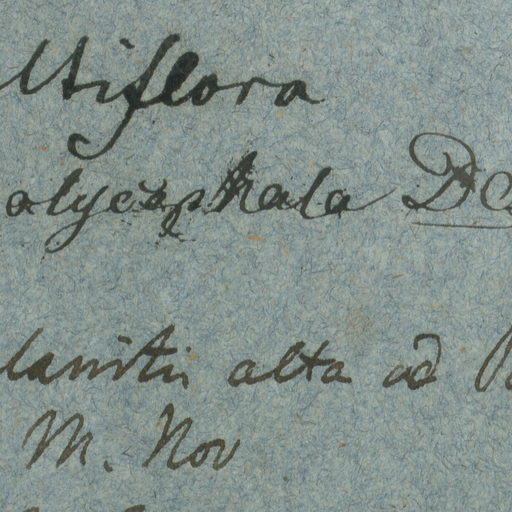 ltiflora
olycephala DC
planitie alta ad
M. Nov